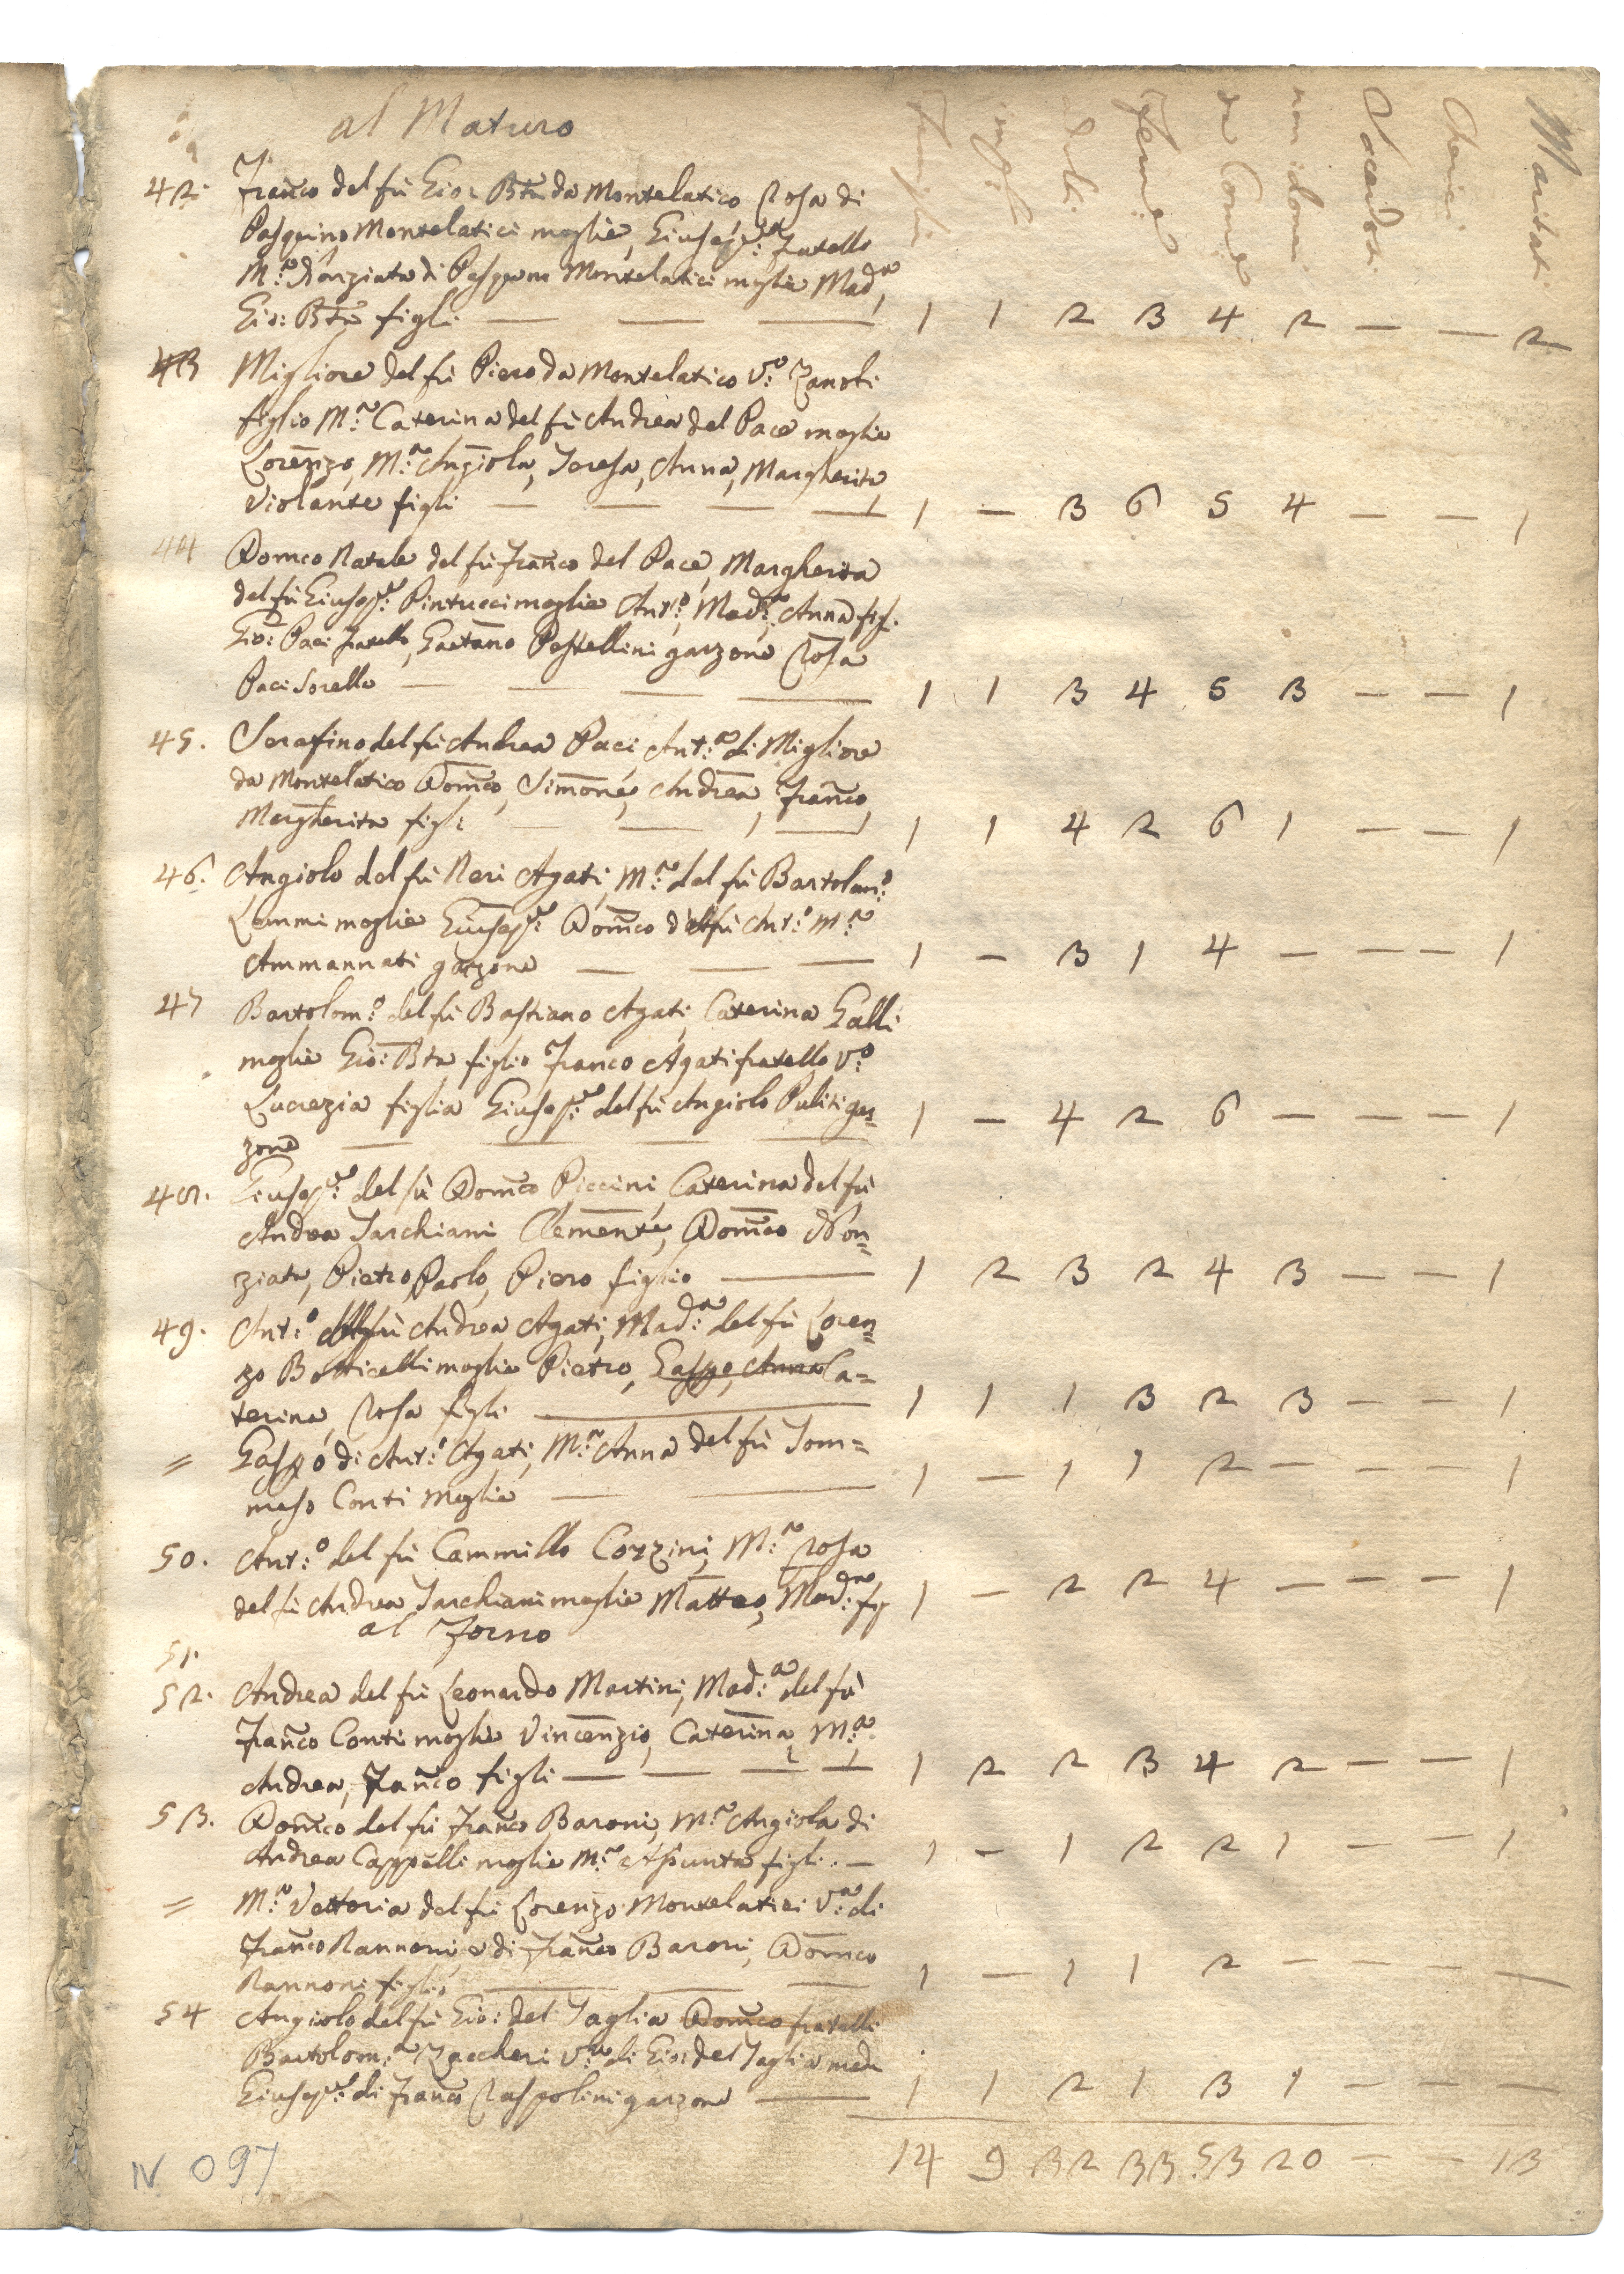 al Maturo
Famiglie
Adulti
Femine
da Comone
non idonei
Sacerdoti
Cherici
Maritati
42. Franco del fù Gio: Btta da Montelatico Rosa di
Pasquino Montelatici moglie, Giuseppe: fratello
M.a Nonziata di Pasquino Montelatici moglie Mad.a,
Gio: Btta figli — — — 1 1 2 3 4 2 — — 2
43 Migliore del fù Piero da Montelatico V.o Zanobi
figlio M.a Caterina del fù Andrea del Pace moglie
Lorenzo, M.a Angiola, Teresa, Anna, Margherita,
Violante figli — — — — 1 — 3 6 5 4 — — 1
44 Domco Natale del fù Franco del Pace, Margherita
del fù Giusep.e: Pintucci moglie Ant.o, Mad.a, Anna fig.
Gio: Paci fratello, Gaetano Pestellini garzone Rosa
Paci Sorella — — — — 1 1 3 4 5 3 — — 1
45. Serafino del fù Andrea Paci, Ant:a di Migliore
da Montelatico Domco, Simone, Andrea, Franco,
Margherita figli — — — 1 1 4 2 6 1 — — 1
46. Angiolo del fù Neri Agati, M.a del fù Bartolom.o
Lemmi moglie Giusep.e: Domco del fù Ant:o M.a
Ammannati garzone — — — 1 — 3 1 4 — — — 1
47 Bartolom.o del fù Bastiano Agati, Caterina Galli
moglie Gio: Btta figlio Franco Agati fratello V.o
Lucrezia figlia Giusep.e: del fù Angiolo Puliti gar=
zone — — — — 1 — 4 2 6 — — — 1
48. Giusep.e: del fù Domco Piccini, Caterina del fù
Andrea Tarchiani Clemente, Domco Non=
ziata, Pietro Paolo, Piero figlio — 1 2 3 2 4 3 — — 1
49. Ant:o del fù Andrea Agati, Mad:a del fù Loren=
zo Botticelli moglie Pietro, Gaspe, Anna Ca=
terina, Rosa figli — 1 1 1 3 2 3 — — 1
= Gaspo di Ant:o Agati, M.a Anna del fù Tom=
maso Conti moglie — — 1 — 1 1 2 — — — 1
50. Ant:o del fù Cammillo Cozzini, M.a Rosa
del fù Andrea Tarchiani moglie Matteo, Mad:a fig 1 — 2 2 4 — — — 1
al Forno
51.
52. Andrea del fù Leonardo Martini, Mad:a del fù
Franco Conti moglie Vincenzio, Caterina, M.a
Andrea, Franco figli — — — — 1 2 2 3 4 2 — — 1
53. Domco del fù Franco Baroni, M.a Angiola di
Andrea Cappelli moglie M.a Assunta figli. — 1 — 1 2 2 1 — — 1
= M.a Vettoria del fù Lorenzo Montelatici V:a di
Franco Nannoni, e di Franco Baroni, Domco
Nannoni figlio — — — 1 — 1 1 2 — — — —
54 Angiolo del fù Gio: del Taglia Domco fratelli
Bartolom:a Zaccheri V:a di Gio: del Taglia made
Giusep.e: di Franco Raspolini garzone — 1 1 2 1 3 1 — — —
14 9 32 33 53 20 — — 13
IV 097